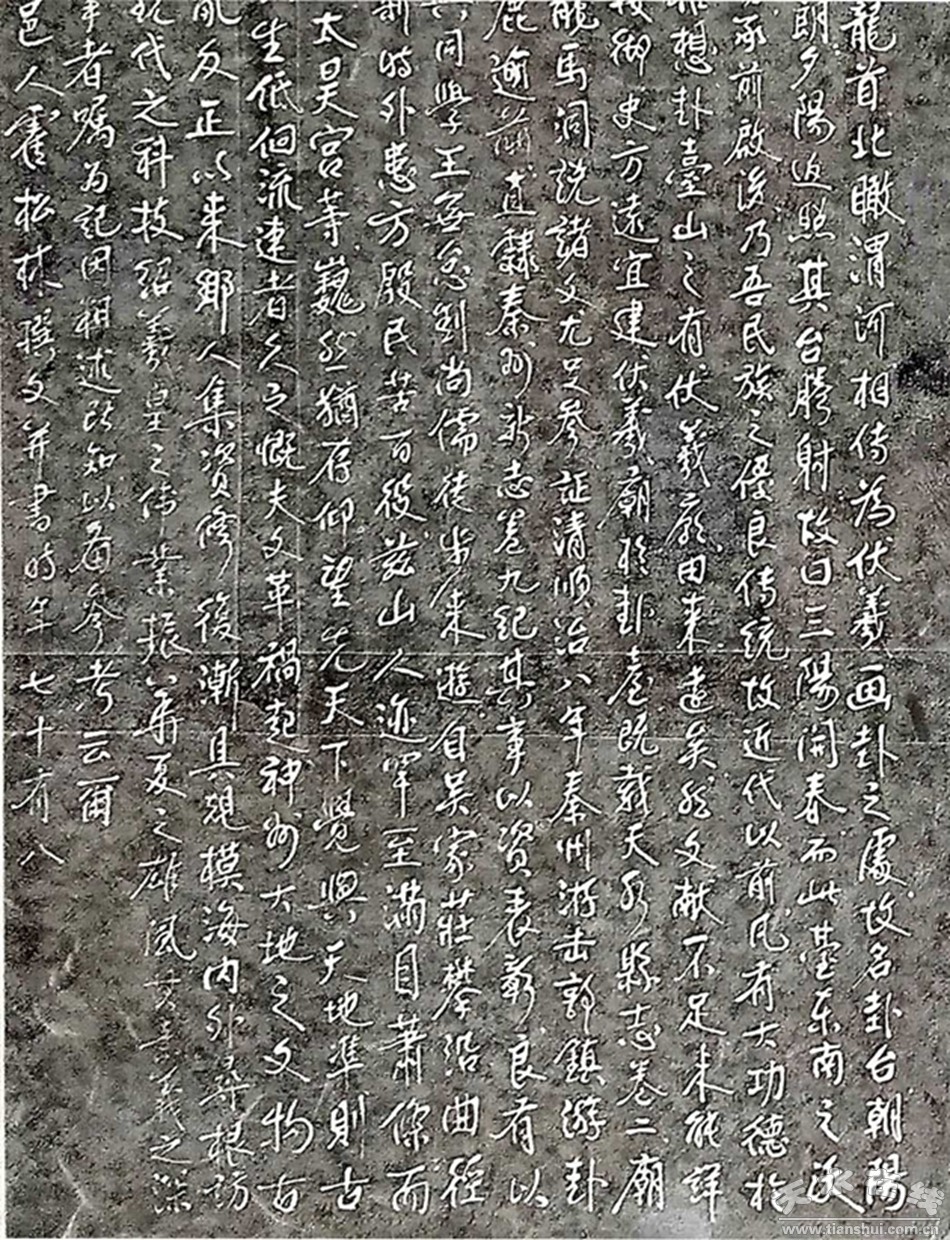 龍首北瞰渭河相传為伏羲画卦之處故名卦台朝陽
朗夕陽返照其台騰射故曰三陽開泰而此臺东南之
承前啟後乃吾民族之優良传統故近代以前凡有大功德於
想卦臺山之有伏羲廟由来遠矣然文献不足未能詳
按御史方遠宜建伏羲廟於卦臺既載天水縣志卷二廟
龍馬洞説諸文尤足參証清順治八年秦州游击郭鎮游卦
鹿適前直隸秦州新志卷九紀其事以資表彰良有以
同學王無怠到尚儒徒步来遊自吴家莊攀沿曲徑
新時外患方殷民苦百役兹山人迹罕至满目萧條而
太昊宫等巍然猶存仰望先天下覺與天地準則古
生低徊流連者久之慨夫文革禍起神州大地之文物古
亂反正以来鄉人集資修復漸具規模海内外尋根访
代之科技紹羲皇之偉業振華夏之雄風其意義之深
事者嘱為記因粗述所知以备參考云爾
邑人霍松林撰文并書時年七十有八
天水陽
www.tianshui.com.cn